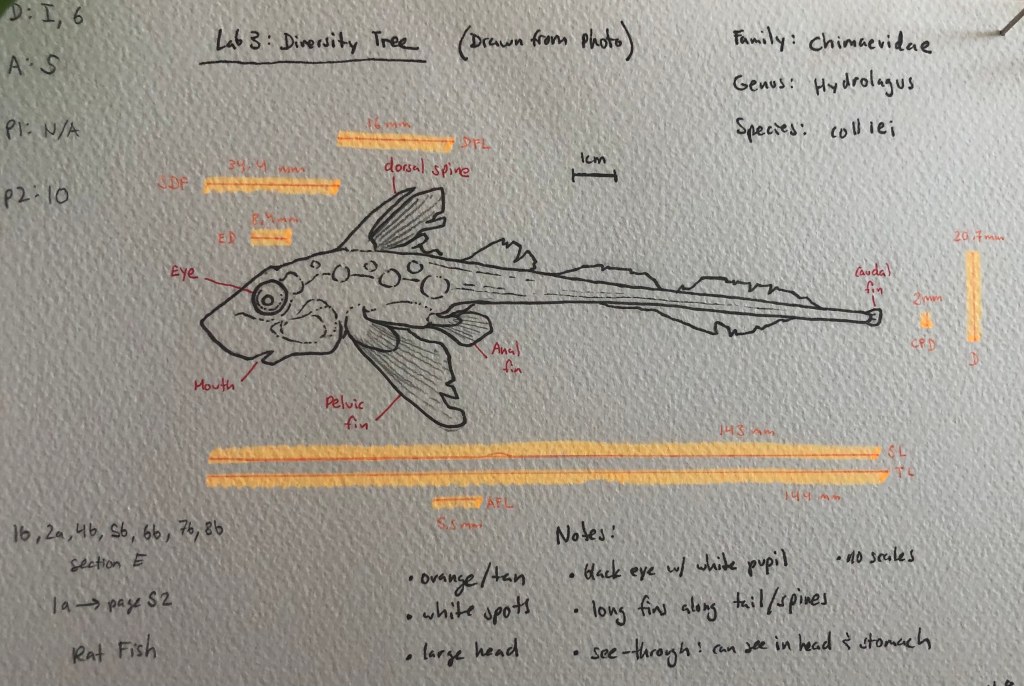 D: I, 6
A: 5
P1: N/A
P2: 10
Lab 3: Diversity Tree (Drawn from photo)
Family: Chimaevidae
Genus: Hydrolagus
Species: colliei
16 mm
DFL
34.4 mm
SDF
8.4mm
ED
dorsal spine
1cm
Eye
Mouth
Pelvic fin
Anal fin
Caudal fin
2mm
CPD
20.7mm
D
143 mm
SL
TL
144 mm
AFL
5.5mm
1b, 2a, 4b, 5b, 6b, 7b, 8b
section E
1a → page 52
Rat Fish
Notes:
• orange/tan
• white spots
• large head
• black eye w/ white pupil
• long fins along tail/spines
• see-through! can see in head & stomach
• no scales